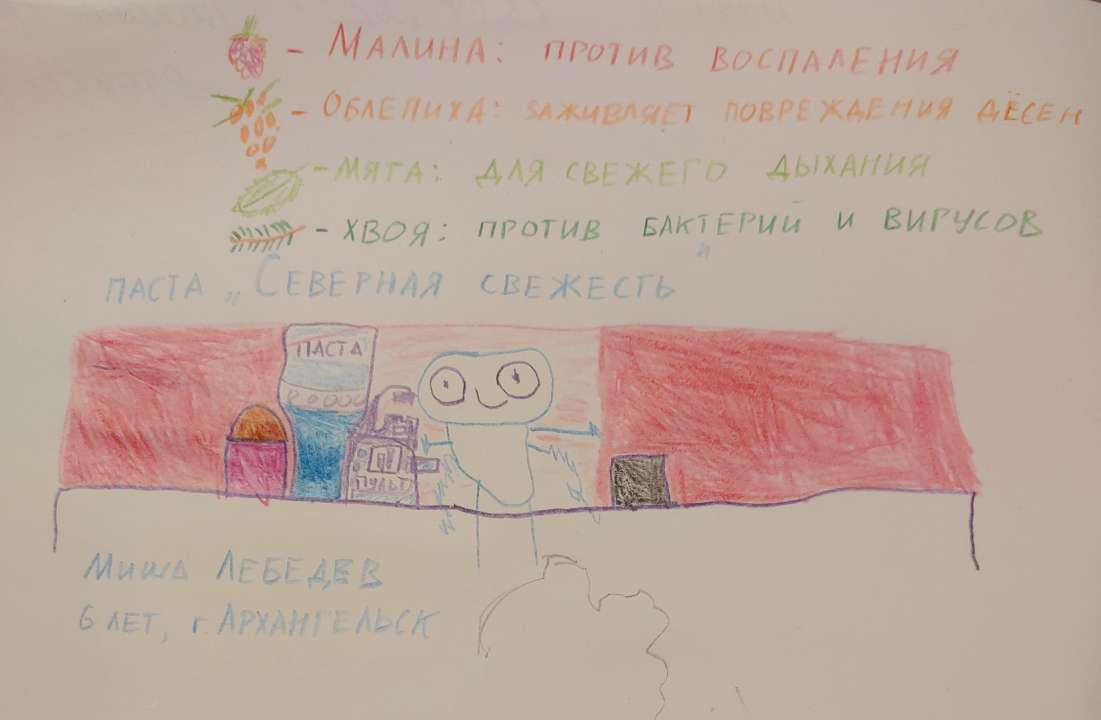 - Малина: против воспаления
- Облепиха: заживляет повреждения дёсен
- Мята: для свежего дыхания
- Хвоя: против бактерий и вирусов
паста „Северная свежесть"
ПАСТА
ПУЛЬТ
Миша Лебедев
6 лет, г. Архангельск